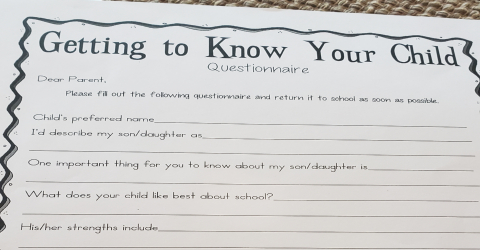 Getting to Know Your Child
Questionnaire
Dear Parent,
Please fill out the following questionnaire and return it to school as soon as possible.
Child's preferred name
I'd describe my son/daughter as
One important thing for you to know about my son/daughter is
What does your child like best about school?
His/her strengths include